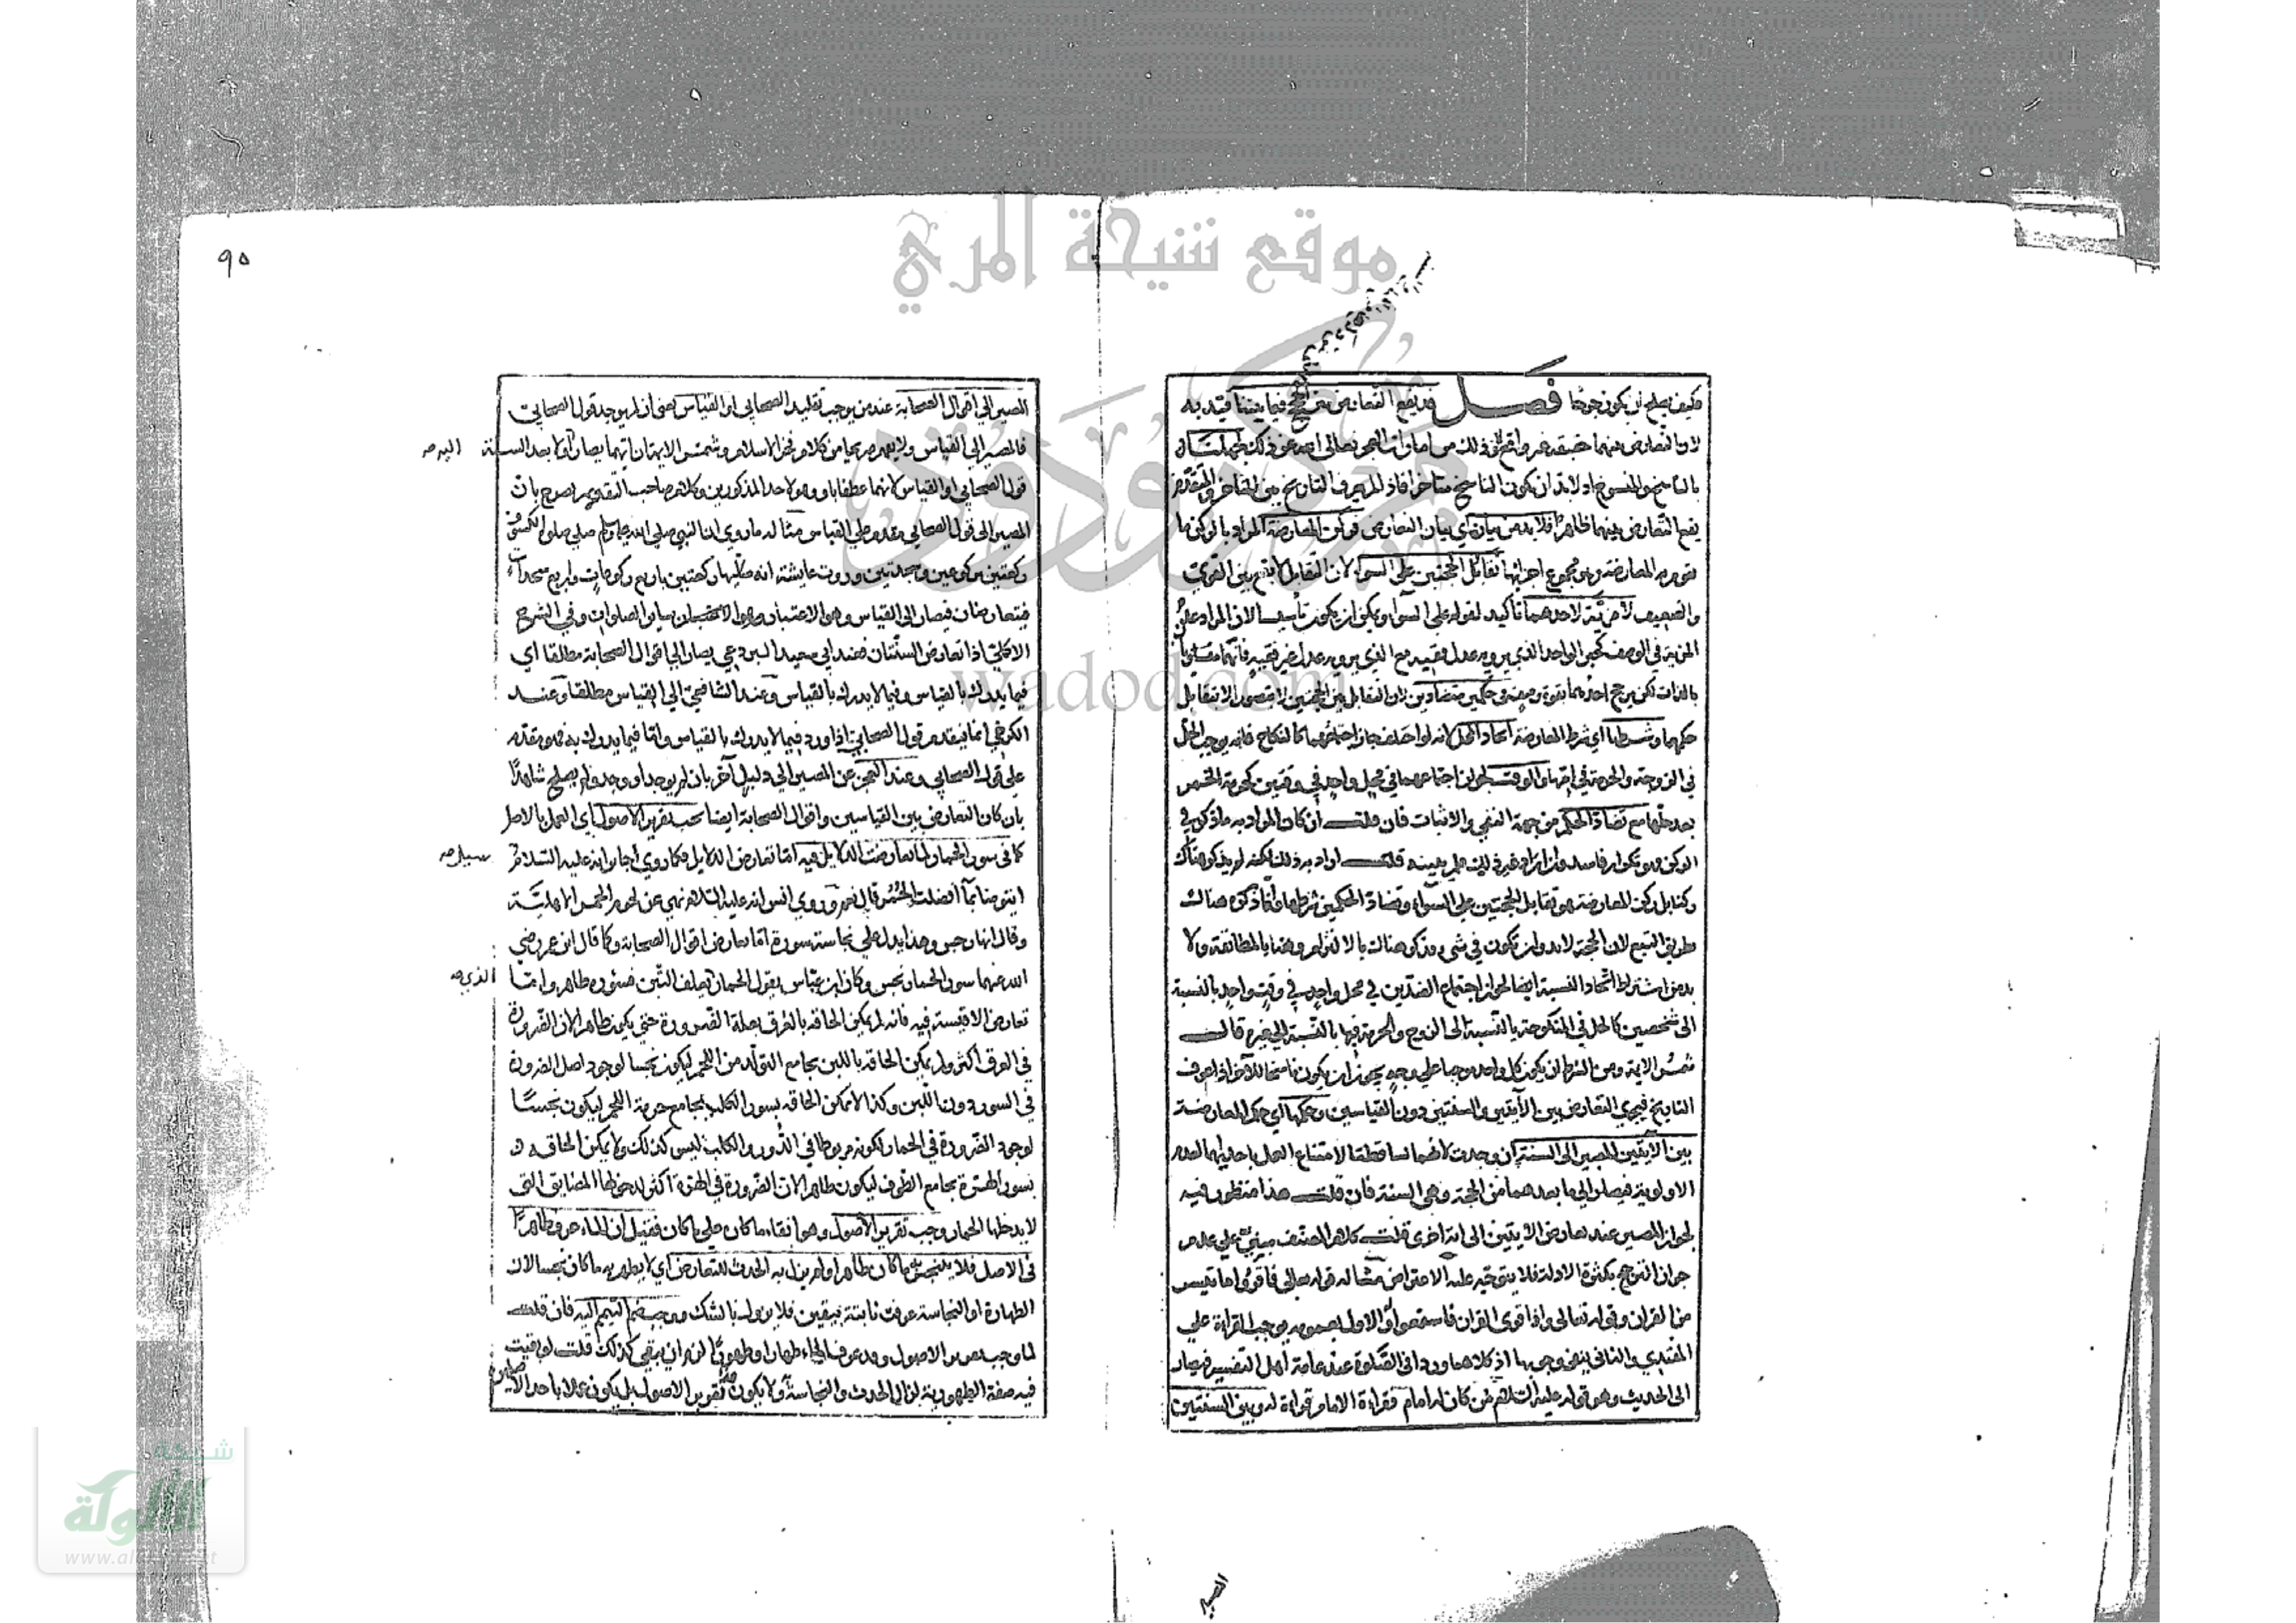 موقع شيحة المري
مركز ودود
wadod.com
فكيف يصلح ان يكون جرحا فصل قد يقع التعارض بين الحجج فيما بيننا قيد به
لان التعارض بينهما حقيقة غير واقع لان ذلك من امارات العجز تعالى الله عن ذلك لجهلنا
بالناسخ والمنسوخ اذ لا بد ان يكون الناسخ متأخرا فاذا لم يعرف التاريخ بين المتأخر والمتقدم
يقع التعارض بينهما ظاهرا فلا بد من بيانه اي بيان التعارض فركن المعارضة المراد بالركن ما
يقوم به المعارضة وهو مجموع اجزائها تقابل الحجتين على السواء لان التقابل لا يقع بين القوي
والضعيف لا مزية لاحدهما تأكيد لقوله على السواء ويمكن ان يكون تأسيسا لان المراد
المزية في الوصف كخبر الواحد الذي يرويه عدل فقيه مع الذي يرويه عدل غير فقيه فانهما متساويان
بالذات لكن يرجح احدهما بقوة وصفه في حكمين متضادين لان التقابل بين الحجتين لا يتصور الا بتقابل
حكمهما وشرطها اي شرط المعارضة اتحاد المحل لانه لو اختلف جاز اجتماعهما كالنكاح فانه يوجب الحل
في الزوجة والحرمة في امها والوقت لجواز اجتماعهما في محل واحد في وقتين كحرمة الخمر
بعد حلها مع تضاد الحكم من جهة النفي والاثبات فان قلت ان كان المراد به ما ذكر في
الركن فهو تكرار فاسد وان اراد غيره فلا بد من بيينه قلت اراد به ذلك لكنه لم يذكر هناك
ركنا بل ركن المعارضة هو تقابل الحجتين على السواء وتضاد الحكمين شرطها وانما ذكره هناك
بطريق التبع لان الحجة لا بد وان تكون في شيء وذكر هناك بالالتزام وهنا بالمطابقة ولا
بد من اشتراط اتحاد النسبة ايضا لجواز اجتماع الضدين في محل واحد في وقت واحد بالنسبة
الى شخصين كالحل في المنكوحة بالنسبة الى الزوج والحرمة فيها بالنسبة الى غيره قال
شمس الائمة ومن الشرط ان يكون كل واحد موجبا على وجه يجوز ان يكون ناسخا للآخر اذا عرف
التاريخ فيجري التعارض بين الآيتين والسنتين دون القياسين وحكمها اي حكم المعارضة
بين الآيتين المصير الى السنة ان وجدت لانهما تساقطتا لامتناع العمل باحديهما لعدم
الاولوية فيصار الى ما بعدهما من الحجة وهي السنة فان قلت هذا منظور فيه
لجواز المصير عند تعارض الآيتين الى آية اخرى قلت كلام المصنف مبني على عدم
جواز الترجيح بكثرة الادلة فلا يتوجه عليه الاعتراض مثاله قوله تعالى فاقرؤا ما تيسر
من القرآن وقوله تعالى واذا قرئ القرآن فاستمعوا فالاول بعمومه يوجب القراءة على
المقتدي والثاني ينفي وجوبها اذ كلاهما وردا في الصلوة عند عامة اهل التفسير فيصار
الى الحديث وهو قوله عليه السلام من كان له امام فقراءة الامام قراءة له وبين السنتين
المصير
٩٥
المصير الى اقوال الصحابة عند من يوجب تقليد الصحابي او القياس يعني ان لم يوجد قول الصحابي
فالمصير الى القياس ولا يفهم صريحا من كلام فخر الاسلام وشمس الائمة ان ايهما يصار اولا بعد السنة
اليه صح
قول الصحابي او القياس لانهما عطفا باو وهو لاحد المذكورين وكلام صاحب التقويم يصرح بان
المصير الى قول الصحابي مقدم على القياس مثاله ما روي ان النبي صلى الله عليه وسلم صلى صلوة الكسوف
ركعتين بركوعين وسجدتين وروت عايشة انه صلاها ركعتين باربع ركوعات واربع سجدات
فيتعارضان فيصار الى القياس وهو الاعتبار بسائر الصلوات وفي الشرح
الاكملي اذا تعارض السنتان فعند ابي سعيد البردعي يصار الى اقوال الصحابة مطلقا اي
فيما يدرك بالقياس وفيما لا يدرك بالقياس وعند الشافعي الى القياس مطلقا وعند
الكرخي انما يقدم قول الصحابي اذا ورد فيما لا يدرك بالقياس واما فيما يدرك به فهو مقدم
على قول الصحابي وعند العجز عن المصير الى دليل آخر بان لم يوجد او وجد ولم يصلح شاهدا
بان كان التعارض بين القياسين واقوال الصحابة ايضا يجب تقرير الاصول اي العمل بالاصل
كما في سور الحمار لما تعارضت الدلايل فيه اما تعارض الدلايل فكما روي جابر انه عليه السلام
سئل صح
ايتوضأ بما افضلت الحمر قال نعم وروي انس انه عليه السلام نهى عن لحوم الحمر الاهلية
وقال انها رجس وهذا يدل على نجاسة سوره اما تعارض اقوال الصحابة فكما قال ابن عمر رضي
الله عنهما سور الحمار نجس وكان ابن عباس يقول الحمار يعلف التبن فسؤره طاهر واما
الذي صح
تعارض الاقيسة فيه فانه لم يمكن الحاقه بالعرق بعلة الضرورة حتى يكون طاهرا لان الضرورة
في العرق اكثر ولم يمكن الحاقه باللبن بجامع التولد من اللحم ليكون نجسا لوجود اصل الضرورة
في السور دون اللبن وكذا لا يمكن الحاقه بسور الكلب بجامع حرمة اللحم ليكون نجسا
لوجود الضرورة في الحمار لكونه مربوطا في الدور والكلب ليس كذلك ولا يمكن الحاقه
بسور الهرة بجامع الطوف ليكون طاهرا لان الضرورة في الهرة اكثر لدخولها المضايق التي
لا يدخلها الحمار وجب تقرير الاصول وهو ابقاء ما كان على ما كان فقيل ان الماء عرف طاهرا
في الاصل فلا يتنجس به ما كان طاهرا ولم يزل به الحدث للتعارض اي لا يطهر به ما كان نجسا لان
الطهارة او النجاسة عرفت ثابتة بيقين فلا يزول بالشك ووجب ضم التيمم اليه فان قلت
لما وجب تقرير الاصول وقد عرف الماء طهارا وطهورا لزم ان يبقى كذلك قلت لو بقيت
فيه صفة الطهورية لزال الحدث والنجاسة ولا يكون تقرير الاصول بل يكون عملا باحد الاصلين
شبكة
الألوكة